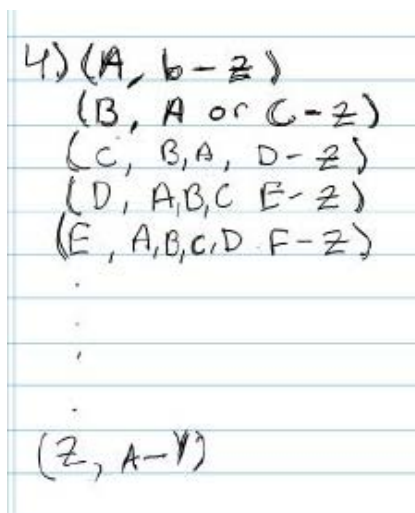 4) (A, b-z)
(B, A or C-Z)
(C, B,A, D-Z)
(D, A,B,C E-Z)
(E, A,B,C,D F-Z)
.
.
.
.
(Z, A-Y)